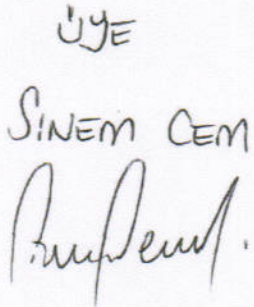 ÜYE
SİNEM CEM